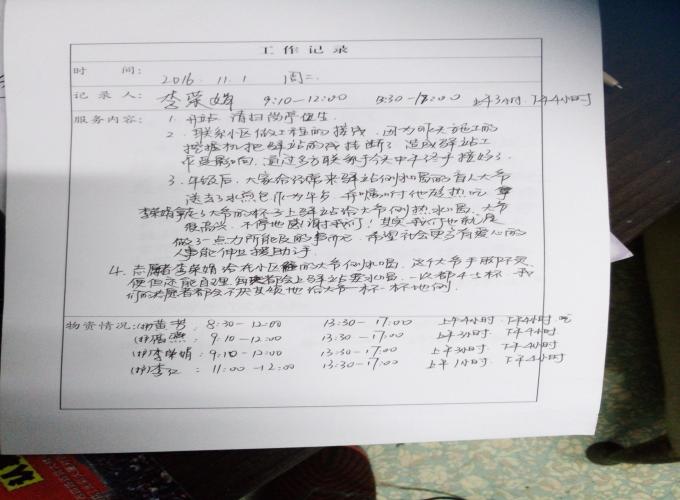 工作记录
时 间： 2016.11.1 周二.
记 录 人： 李荣娟 9:10-12:00 13:30-17:00 上午3小时.下午4小时
服务内容： 1. 开站、清扫岗亭卫生.
2. 联系小区做工程的接线，因为昨天施工的
挖掘机把驿站的线挂断了，造成驿站工
作受影响，通过多方联系于今天中午终于接好了.
3. 午饭后，大家给经常来驿站倒水喝的盲人大爷
送去了水煎包作为午点，并嘱咐他趁热吃，
李荣娟拿上了大爷的杯子上驿站给大爷倒热水喝，大爷
很高兴，不停地感谢我们！其实我们也就是
做了一点力所能及的事而已，希望社会更多有爱心的
人事能伸出援助之手.
4. 志愿者李荣娟给在小区的大爷倒水喝，这个大爷手脚不灵
便但还能自理，每都会上驿站要水喝，一次都4-5杯，我
们的志愿者都会不厌其烦地给大爷一杯一杯地倒.
物资情况： 黄芳， 8:30-12:00 13:30-17:00 上午4小时.下午4小时
周燕： 9:10-12:00 13:30-17:00 上午3小时. 下午4小时
李荣娟： 9:10-12:00 13:30-17:00 上午3小时. 下午4小时
李红： 11:00-12:00 13:30-17:00 上午1小时. 下午4小时